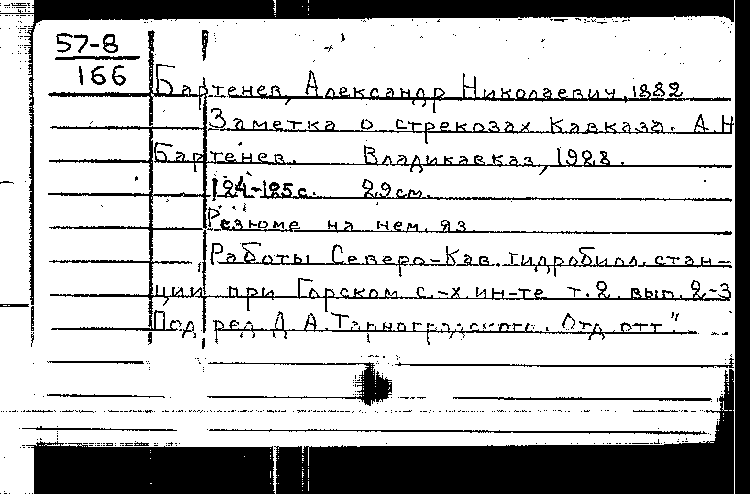 57-8
166
Бартенев, Александр Николаевич, 1882
Заметка о стрекозах Кавказа. А.Н
Бартенев. Владикавказ, 1928.
124-125 с. 29 см.
Резюме на нем. яз.
"Работы Северо-Кав. гидробиол. стан-
ции при Горском с.-х. ин-те т. 2. вып. 2-3
Под ред. Д. А. Тарноградского. Отд. отт"